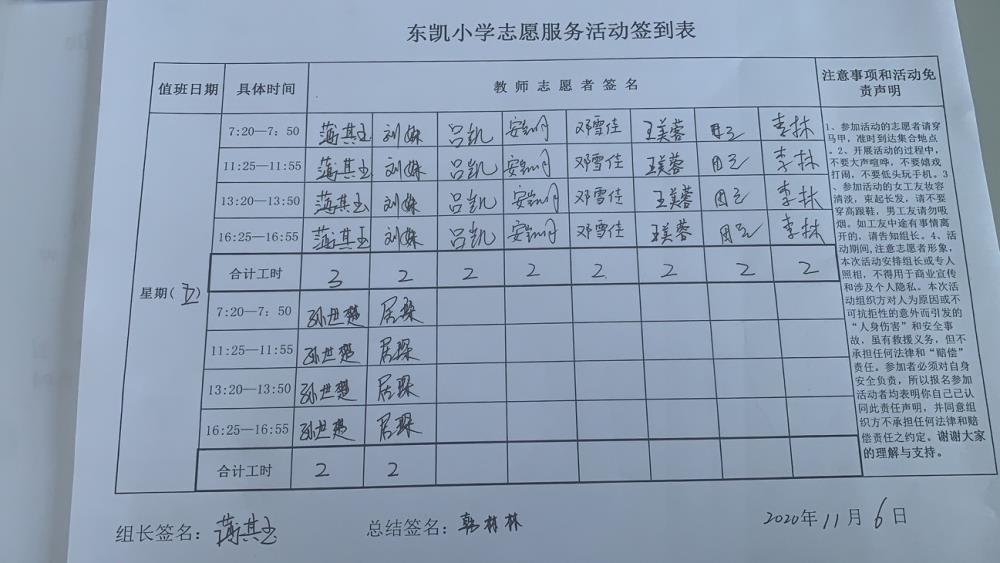 东凯小学志愿服务活动签到表
值班日期 具体时间 教师志愿者签名 注意事项和活动免责声明
7:20—7：50 薄其玉 刘姝 吕凯 安凯月 邓雪佳 王美蓉 李林
11:25—11:55 薄其玉 刘姝 吕凯 安凯月 邓雪佳 王美蓉 李林
13:20—13:50 薄其玉 刘姝 吕凯 安凯月 邓雪佳 王美蓉 李林
16:25—16:55 薄其玉 刘姝 吕凯 安凯月 邓雪佳 王美蓉 李林
合计工时 3 2 2 2 2 2 2 2
星期(五)
7:20—7：50 孙世楚 居琛
11:25—11:55 孙世楚 居琛
13:20—13:50 孙世楚 居琛
16:25—16:55 孙世楚 居琛
合计工时 2 2
1、参加活动的志愿者请穿
马甲，准时到达集合地点
。2、开展活动的过程中，
不要大声喧哗，不要嬉戏
打闹，不要低头玩手机。3
、参加活动的女工友妆容
清淡，束起长发，请不要
穿高跟鞋，男工友请勿吸
烟。如工友中途有事情离
开的，请告知组长。4、活
动期间,注意志愿者形象，
本次活动安排组长或专人
照相，不得用于商业宣传
和涉及个人隐私。本次活
动组织方对人为原因或不
可抗拒性的意外而引发的
“人身伤害”和安全事
故，虽有救援义务，但不
承担任何法律和“赔偿”
责任。参加者必须对自身
安全负责，所以报名参加
活动者均表明你自己已认
同此责任声明，并同意组
织方不承担任何法律和赔
偿责任之约定。谢谢大家
的理解与支持。
组长签名：薄其玉 总结签名：韩林林 2020年11月6日